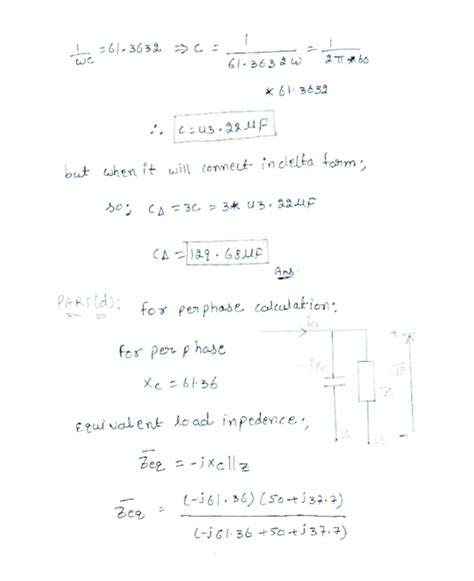 1/ωC = 61.3632 ⇒ C = 1/(61.3632 ω) = 1/(2π*60
* 61.3632
∴ C = 43.22 μF
but when it will connect in delta form;
so; CΔ = 3C = 3* 43.22 μF
CΔ = 129.68 μF
Ans.
PART(d): for perphase calculation:
ia
for per phase
-jXc
Z
Xc = 61.36
Equivalent load inpedence:,
Zeq = -jXc||Z
Zeq = (-j61.36) (50+j37.7) / (-j61.36 + 50 + j37.7)